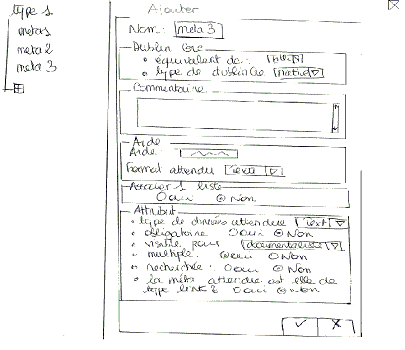 type 1
meta 1
meta 2
meta 3
Ajouter
Nom: meta 3
Dublin Core
équivalent de:
type de dublin Core natif
Commentaire
Aide
Aide
Format attendu Texte
Associer 1 liste
oui Non
Attribut
type de données attendue Text
obligatoire oui Non
visible pour documentaliste
multiple: oui Non
recherchable: oui Non
la méta attendue est elle de
type link? oui non